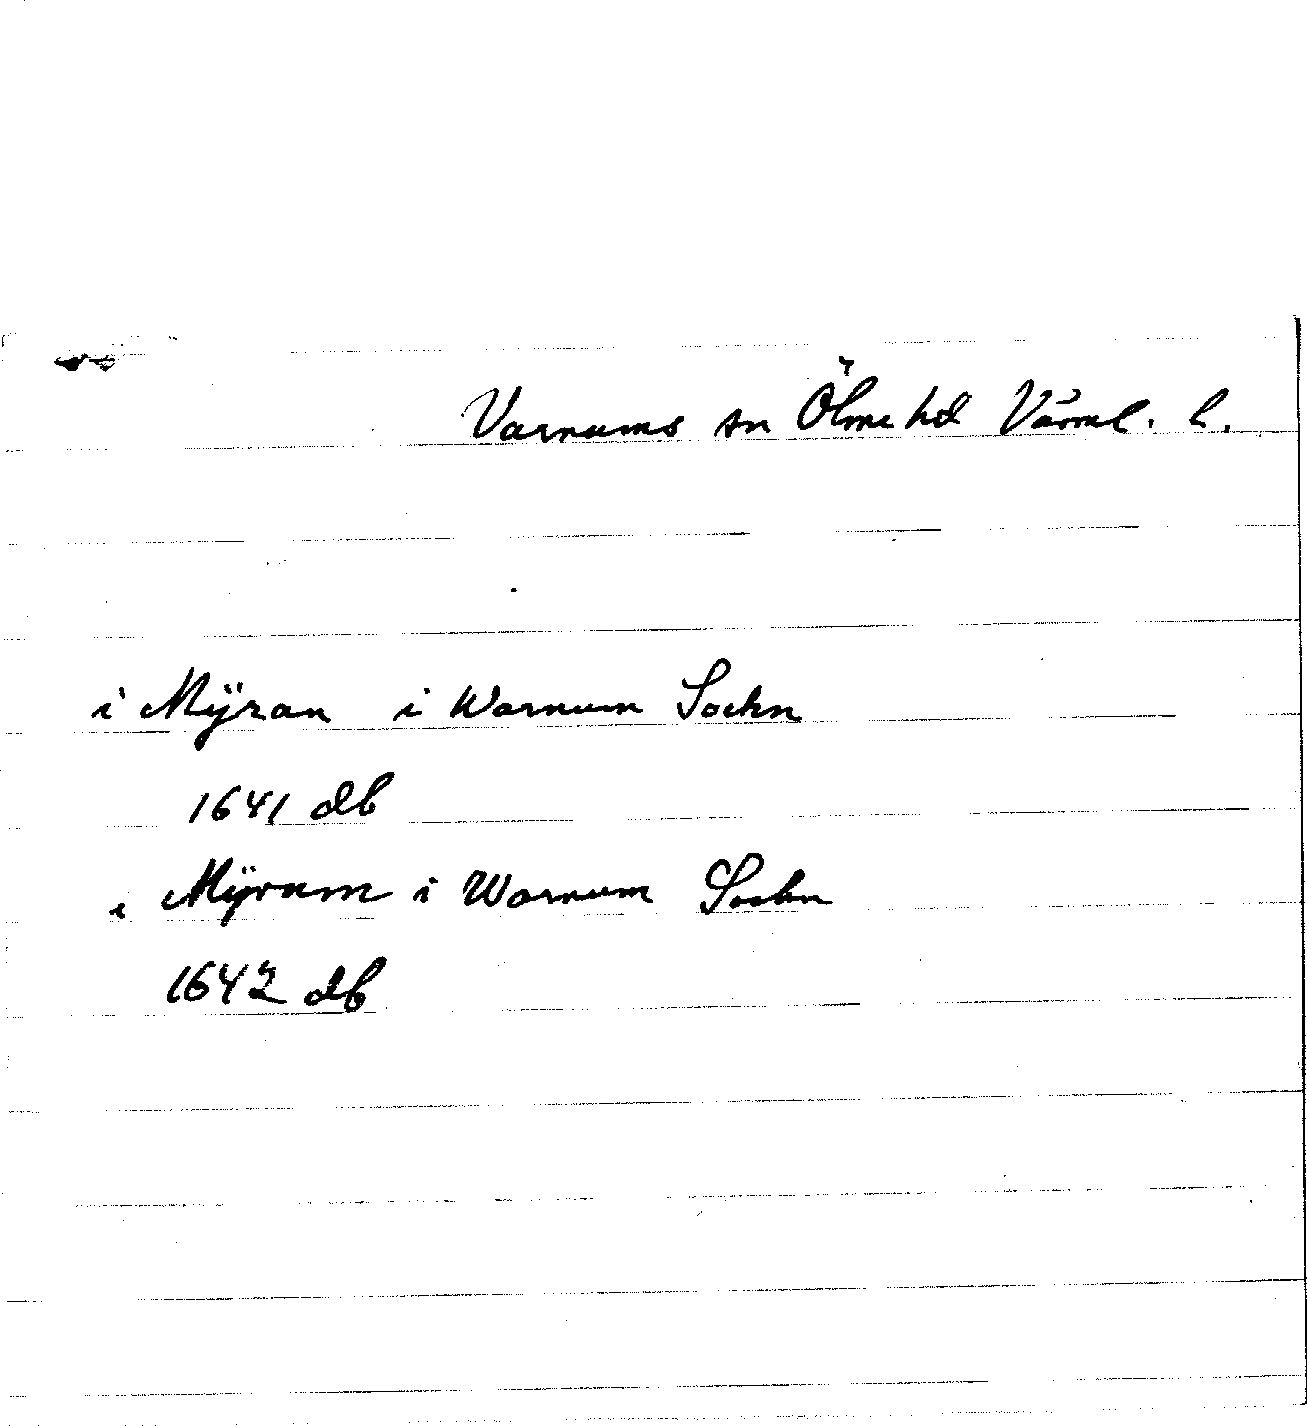 Varnums sn Ölme hd Värml. l.
i Mÿran i Warnum Sockn
1641 db
i Mÿrum i Warnum Sockn
1642 db